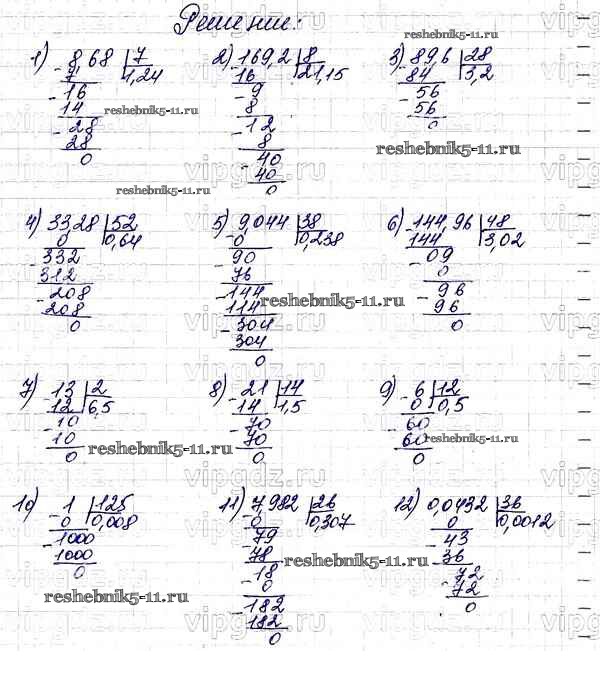 Решение:
reshebnik5-11.ru
1) 8,68 | 7    2) 169,2 | 8    3) 89,6 | 28
7 | 1,24    16 | 21,15    84 | 3,2
16    9    56
14    8    56
28    12    0
28    8
0    40
40
0
reshebnik5-11.ru
reshebnik5-11.ru
reshebnik5-11.ru
4) 33,28 | 52    5) 9,044 | 38    6) 144,96 | 48
0 | 0,64    0 | 0,238    144 | 3,02
332    90    09
312    76    0
208    144    96
208    114    96
0    304    0
304
0
reshebnik5-11.ru
7) 13 | 2    8) 21 | 14    9) 6 | 12
12 | 6,5    14 | 1,5    0 | 0,5
10    70    60
10    70    60
0    0    0
reshebnik5-11.ru
reshebnik5-11.ru
10) 1 | 125    11) 7,982 | 26    12) 0,0432 | 36
0 | 0,008    0 | 0,307    0 | 0,0012
1000    79    43
1000    78    36
0    18    72
0    72
182    0
182
0
reshebnik5-11.ru
reshebnik5-11.ru
vipgdz.ru